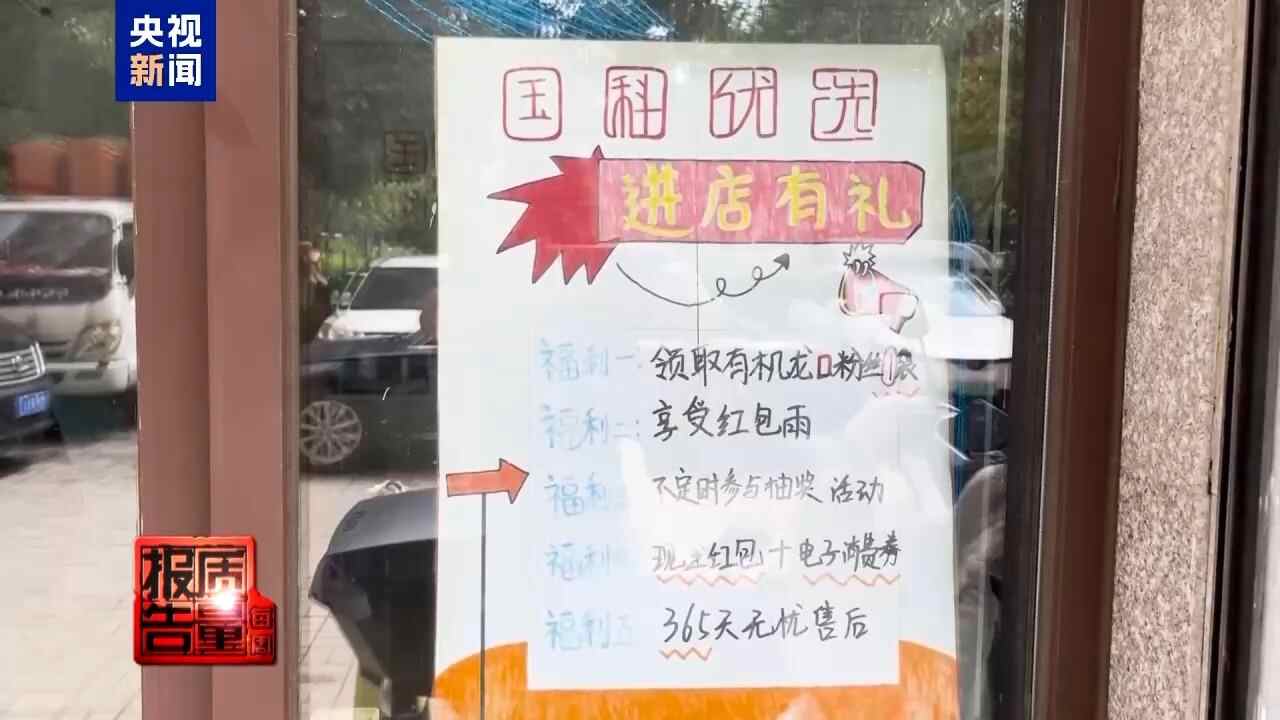 央视
新闻
国科优选
进店有礼
福利一:领取有机龙口粉丝1袋
福利二:享受红包雨
福利三 不定时参与抽奖活动
福利 现金红包+电子消费券
福利五 365天无忧售后
每周
质量
报告